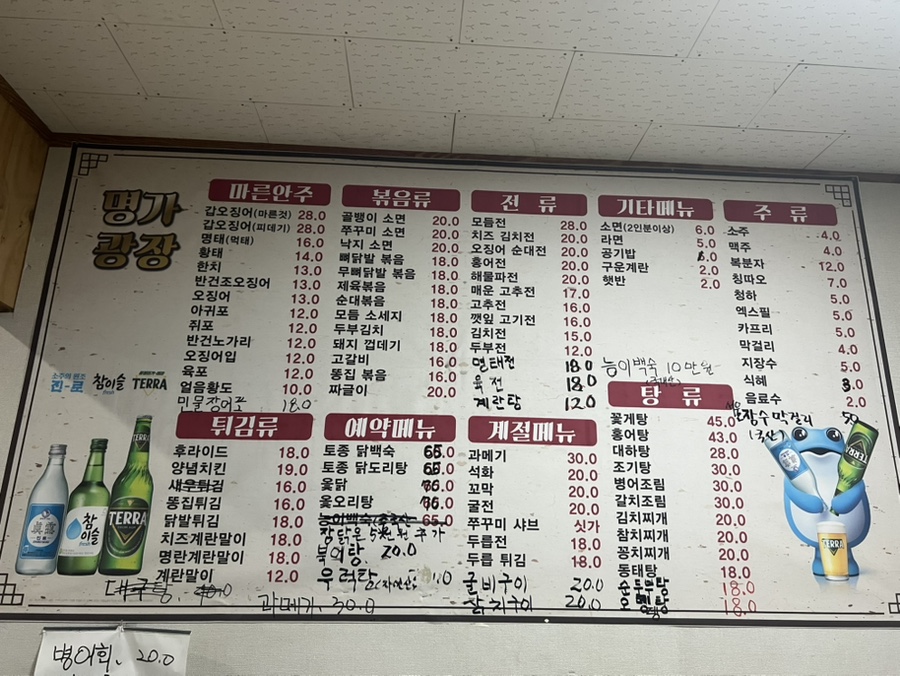 명가
광장
마른안주
갑오징어(마른것) 28.0
갑오징어(피데기) 28.0
명태(먹태) 16.0
황태 14.0
한치 13.0
반건조오징어 13.0
오징어 13.0
아귀포 12.0
쥐포 12.0
반건노가리 12.0
오징어입 12.0
육포 12.0
얼음황도 10.0
민물장어포 18.0
볶음류
골뱅이 소면 20.0
쭈꾸미 소면 20.0
낙지 소면 20.0
뼈닭발 볶음 18.0
무뼈닭발 볶음 18.0
제육볶음 18.0
순대볶음 18.0
모듬 소세지 18.0
두부김치 18.0
돼지 껍데기 18.0
고갈비 16.0
똥집 볶음 16.0
짜글이 20.0
전 류
모듬전 28.0
치즈 김치전 20.0
오징어 순대전 20.0
홍어전 20.0
해물파전 20.0
매운 고추전 17.0
고추전 16.0
깻잎 고기전 16.0
김치전 15.0
두부전 12.0
명태전 18.0
육전 18.0
계란탕 12.0
기타메뉴
소면(2인분이상) 6.0
라면 5.0
공기밥
구운계란 2.0
햇반 2.0
능이백숙 10만원
주 류
소주 4.0
맥주 4.0
복분자 12.0
칭따오 7.0
청하 5.0
엑스필 5.0
카프리 5.0
막걸리 4.0
지장수 5.0
식혜 3.0
음료수 2.0
장수막걸리
(국산)
탕 류
꽃게탕 45.0
홍어탕 43.0
대하탕 28.0
조기탕 30.0
병어조림 30.0
갈치조림 30.0
김치찌개 20.0
참치찌개 20.0
꽁치찌개 20.0
동태탕 18.0
순두부탕 18.0
오뎅탕 18.0
소주의 원조
진로
참이슬
fresh
TERRA
튀김류
후라이드 18.0
양념치킨 19.0
새우튀김 16.0
똥집튀김 16.0
닭발튀김 18.0
치즈계란말이 18.0
명란계란말이 18.0
계란말이 12.0
예약메뉴
토종 닭백숙 65.0
토종 닭도리탕 65.0
옻닭
옻오리탕
능이백숙 65.0
참닭은 5천원 추가
북어탕 20.0
우럭탕
계절메뉴
과메기 30.0
석화 20.0
꼬막 20.0
굴전 20.0
쭈꾸미 샤브 싯가
두릅전 18.0
두릅 튀김 18.0
굴비구이 20.0
갈치구이 20.0
과메기. 30.0
참이슬
TERRA
TERRA
TERRA
병어회. 20.0